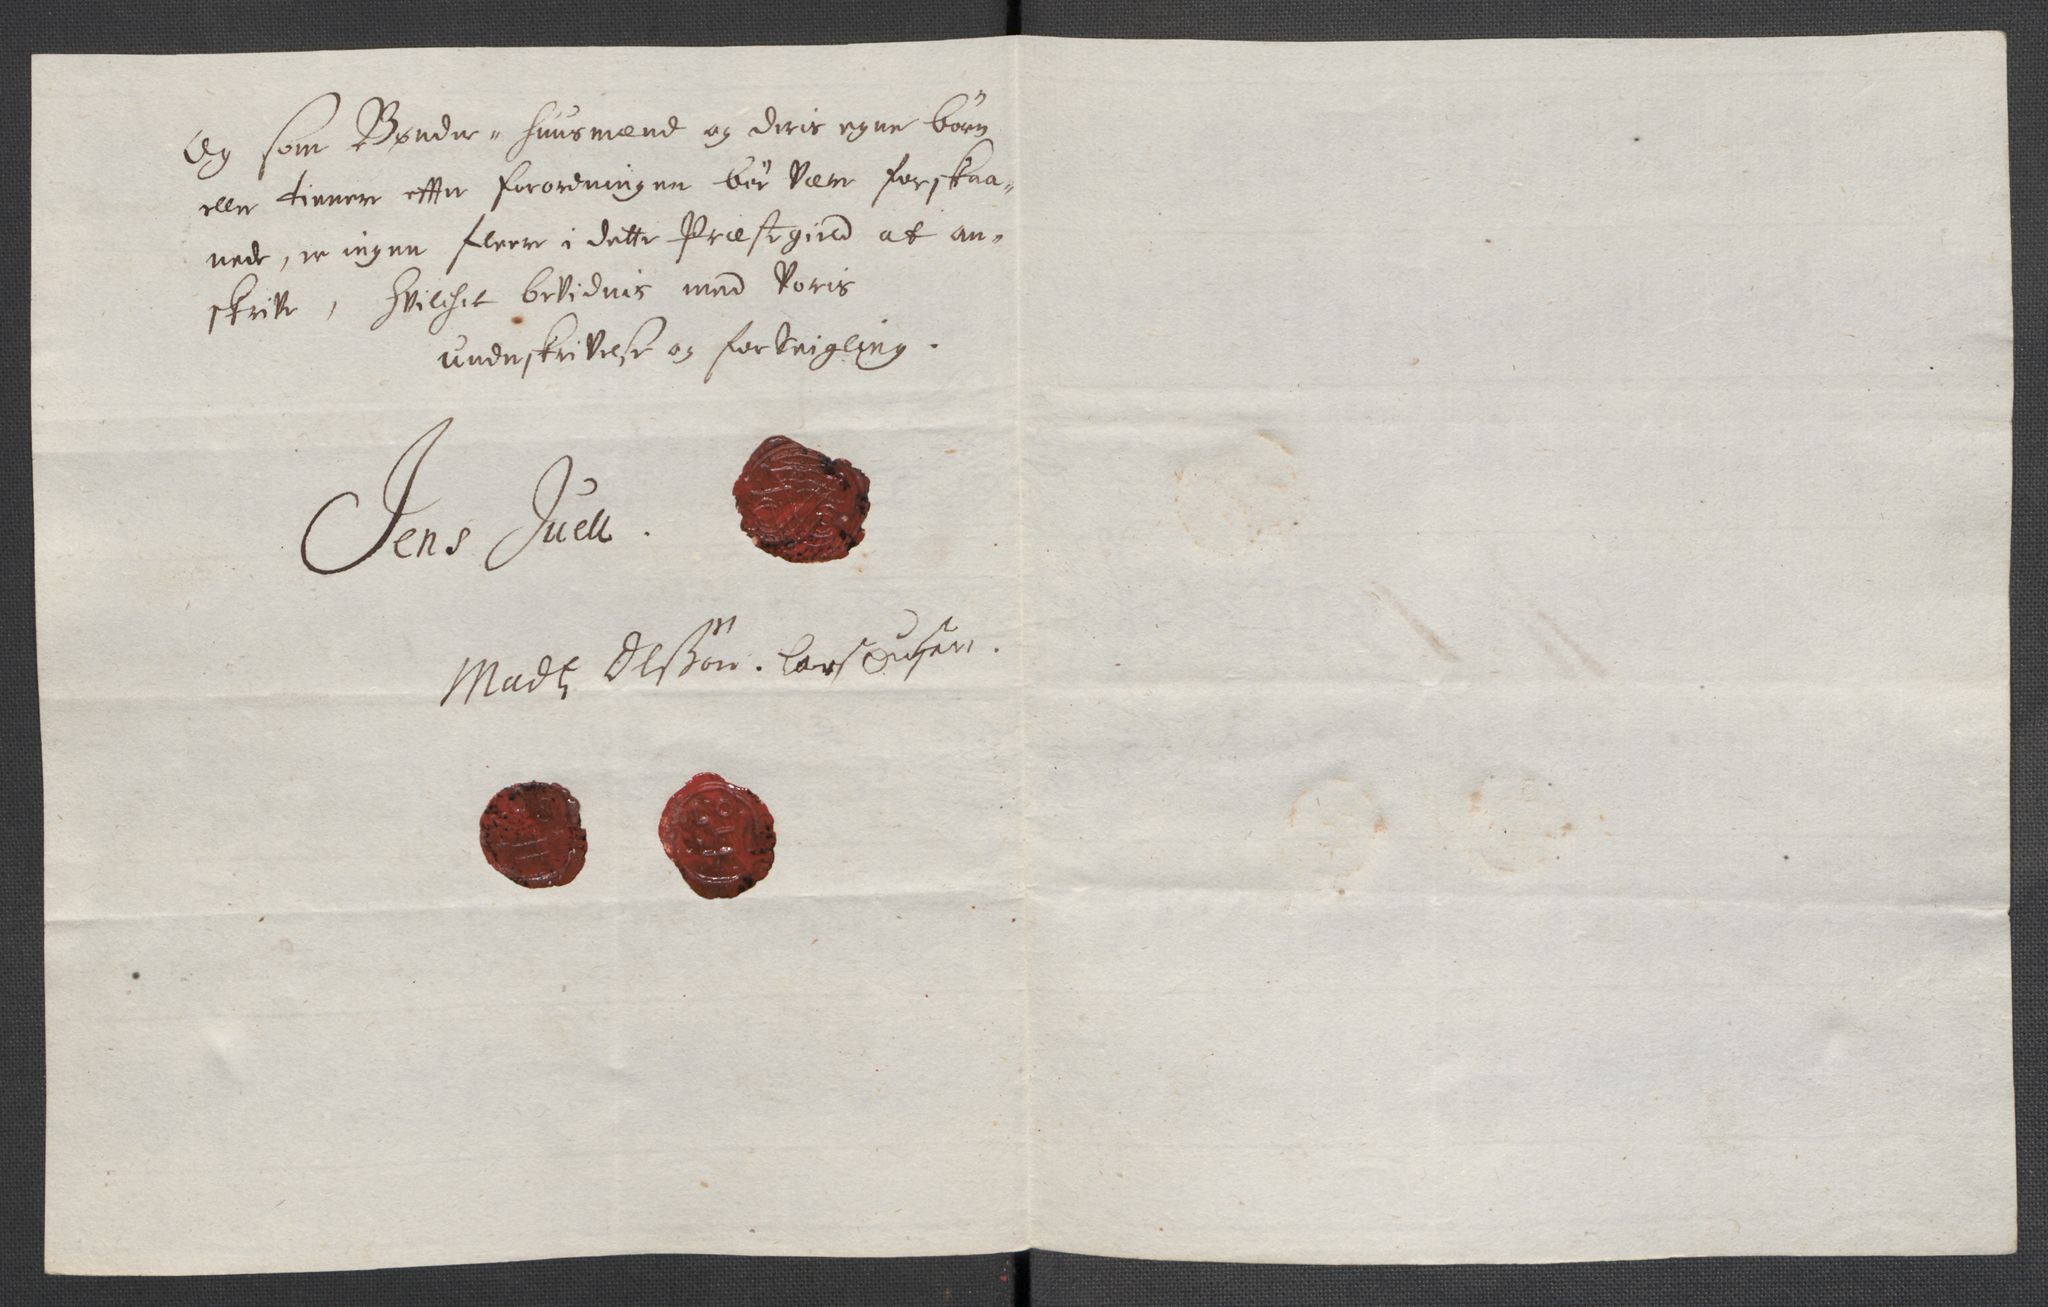 Og som Bønder- huusmænd og deris egne börn
eller tienere effter forordningen bör være forskaa-
nede, er ingen fleere i dette Præstegield at an-
skrive, hvilchet bevidnis med voris
underskrivelse og forseigling.
Jens Juell.
Madtz Olssön. Lars